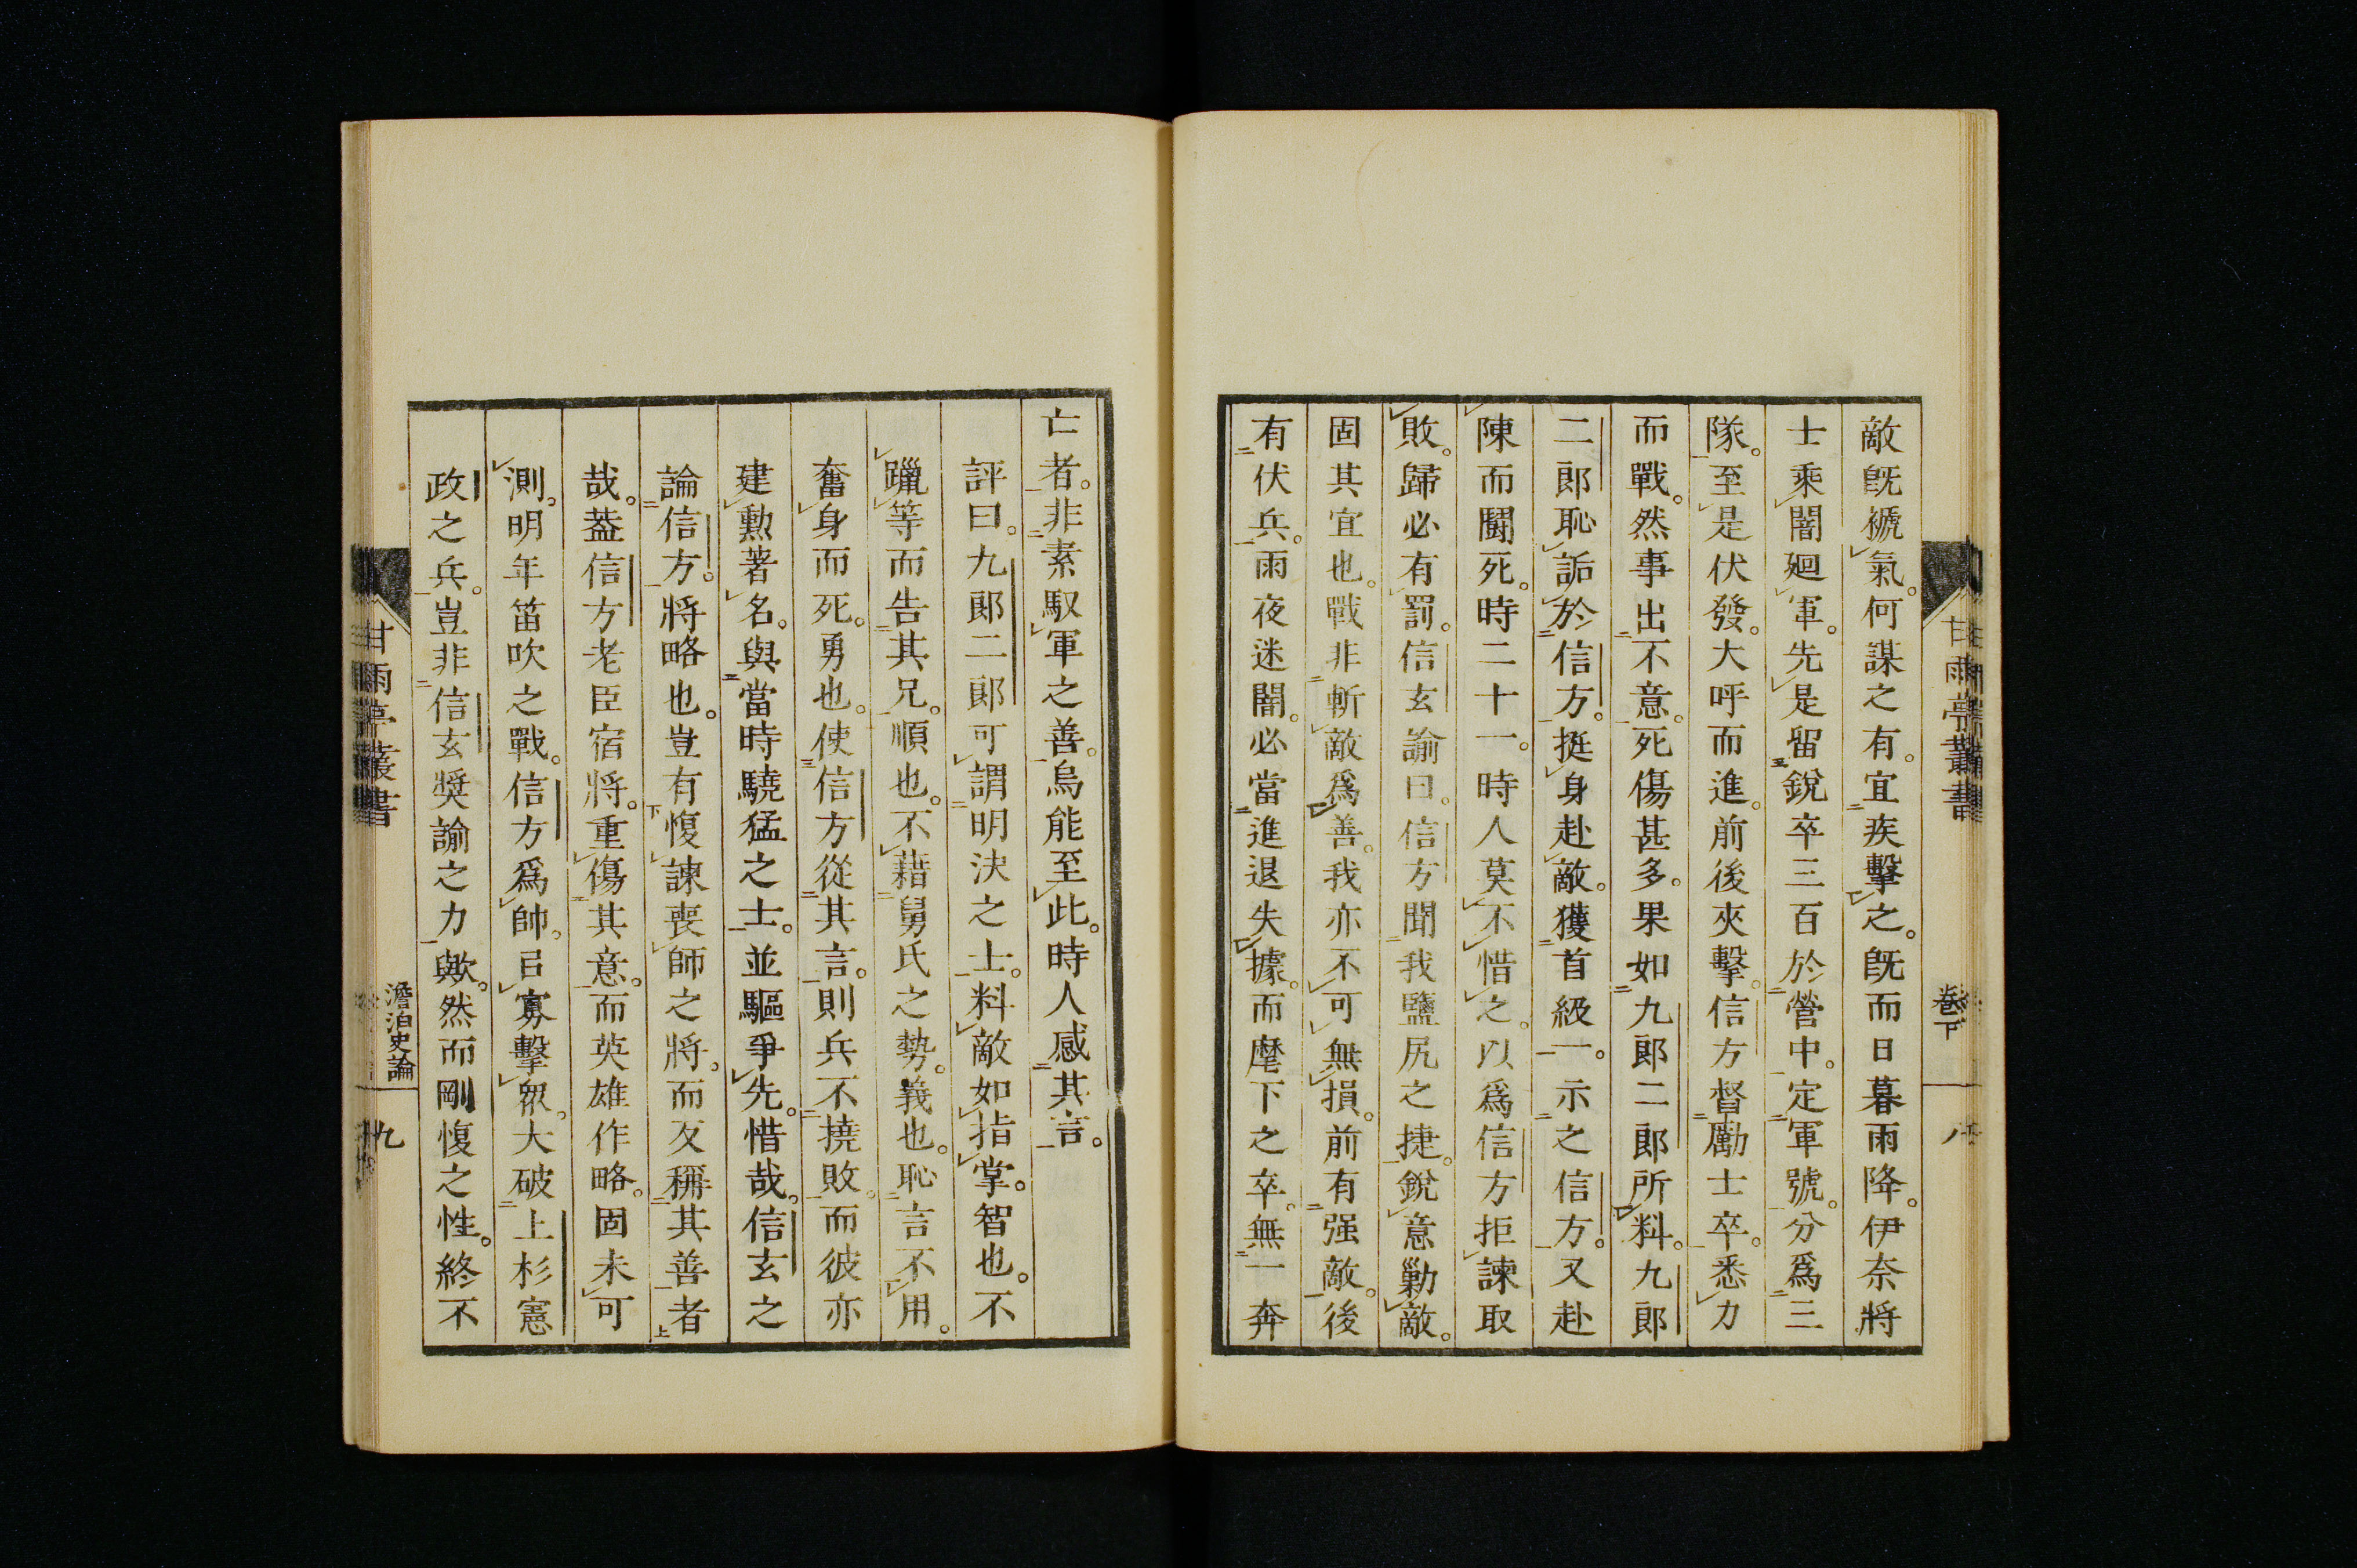 敵既褫氣。何謀之有。宜疾擊之。既而日暮雨降。伊奈將
士乘闇廻軍。先是留銳卒三百於營中。定軍號。分爲三
隊。至是伏發。大呼而進。前後夾擊。信方督勵士卒。悉力
而戰。然事出不意。死傷甚多。果如九郎二郎所料。九郎
二郎恥詬於信方。挺身赴敵。獲首級一。示之信方。又赴
陳而鬪死。時二十一。時人莫不惜之。以爲信方拒諫取
敗。歸必有罰。信玄諭曰。信方聞我鹽尻之捷。銳意勦敵。
固其宜也。戰非斬敵爲善。我亦不可無損。前有强敵。後
有伏兵。雨夜迷闇。必當進退失據。而麾下之卒。無一奔
甘雨亭叢書
卷下
八
亡者。非素馭軍之善。烏能至此。時人感其言。
評曰。九郎二郎可謂明決之士。料敵如指掌。智也。不
躐等而告其兄。順也。不藉舅氏之勢。義也。恥言不用。
奮身而死。勇也。使信方從其言。則兵不撓敗。而彼亦
建勳著名。與當時驍猛之士。並驅爭先。惜哉。信玄之
論信方。將略也。豈有愎諫喪師之將。而反稱其善者
哉。葢信方老臣宿將。重傷其意。而英雄作略。固未可
測。明年笛吹之戰。信方爲帥。㠯寡擊衆。大破上杉憲
政之兵。豈非信玄奬諭之力歟。然而剛愎之性。終不
甘雨亭叢書
澹泊史論
九